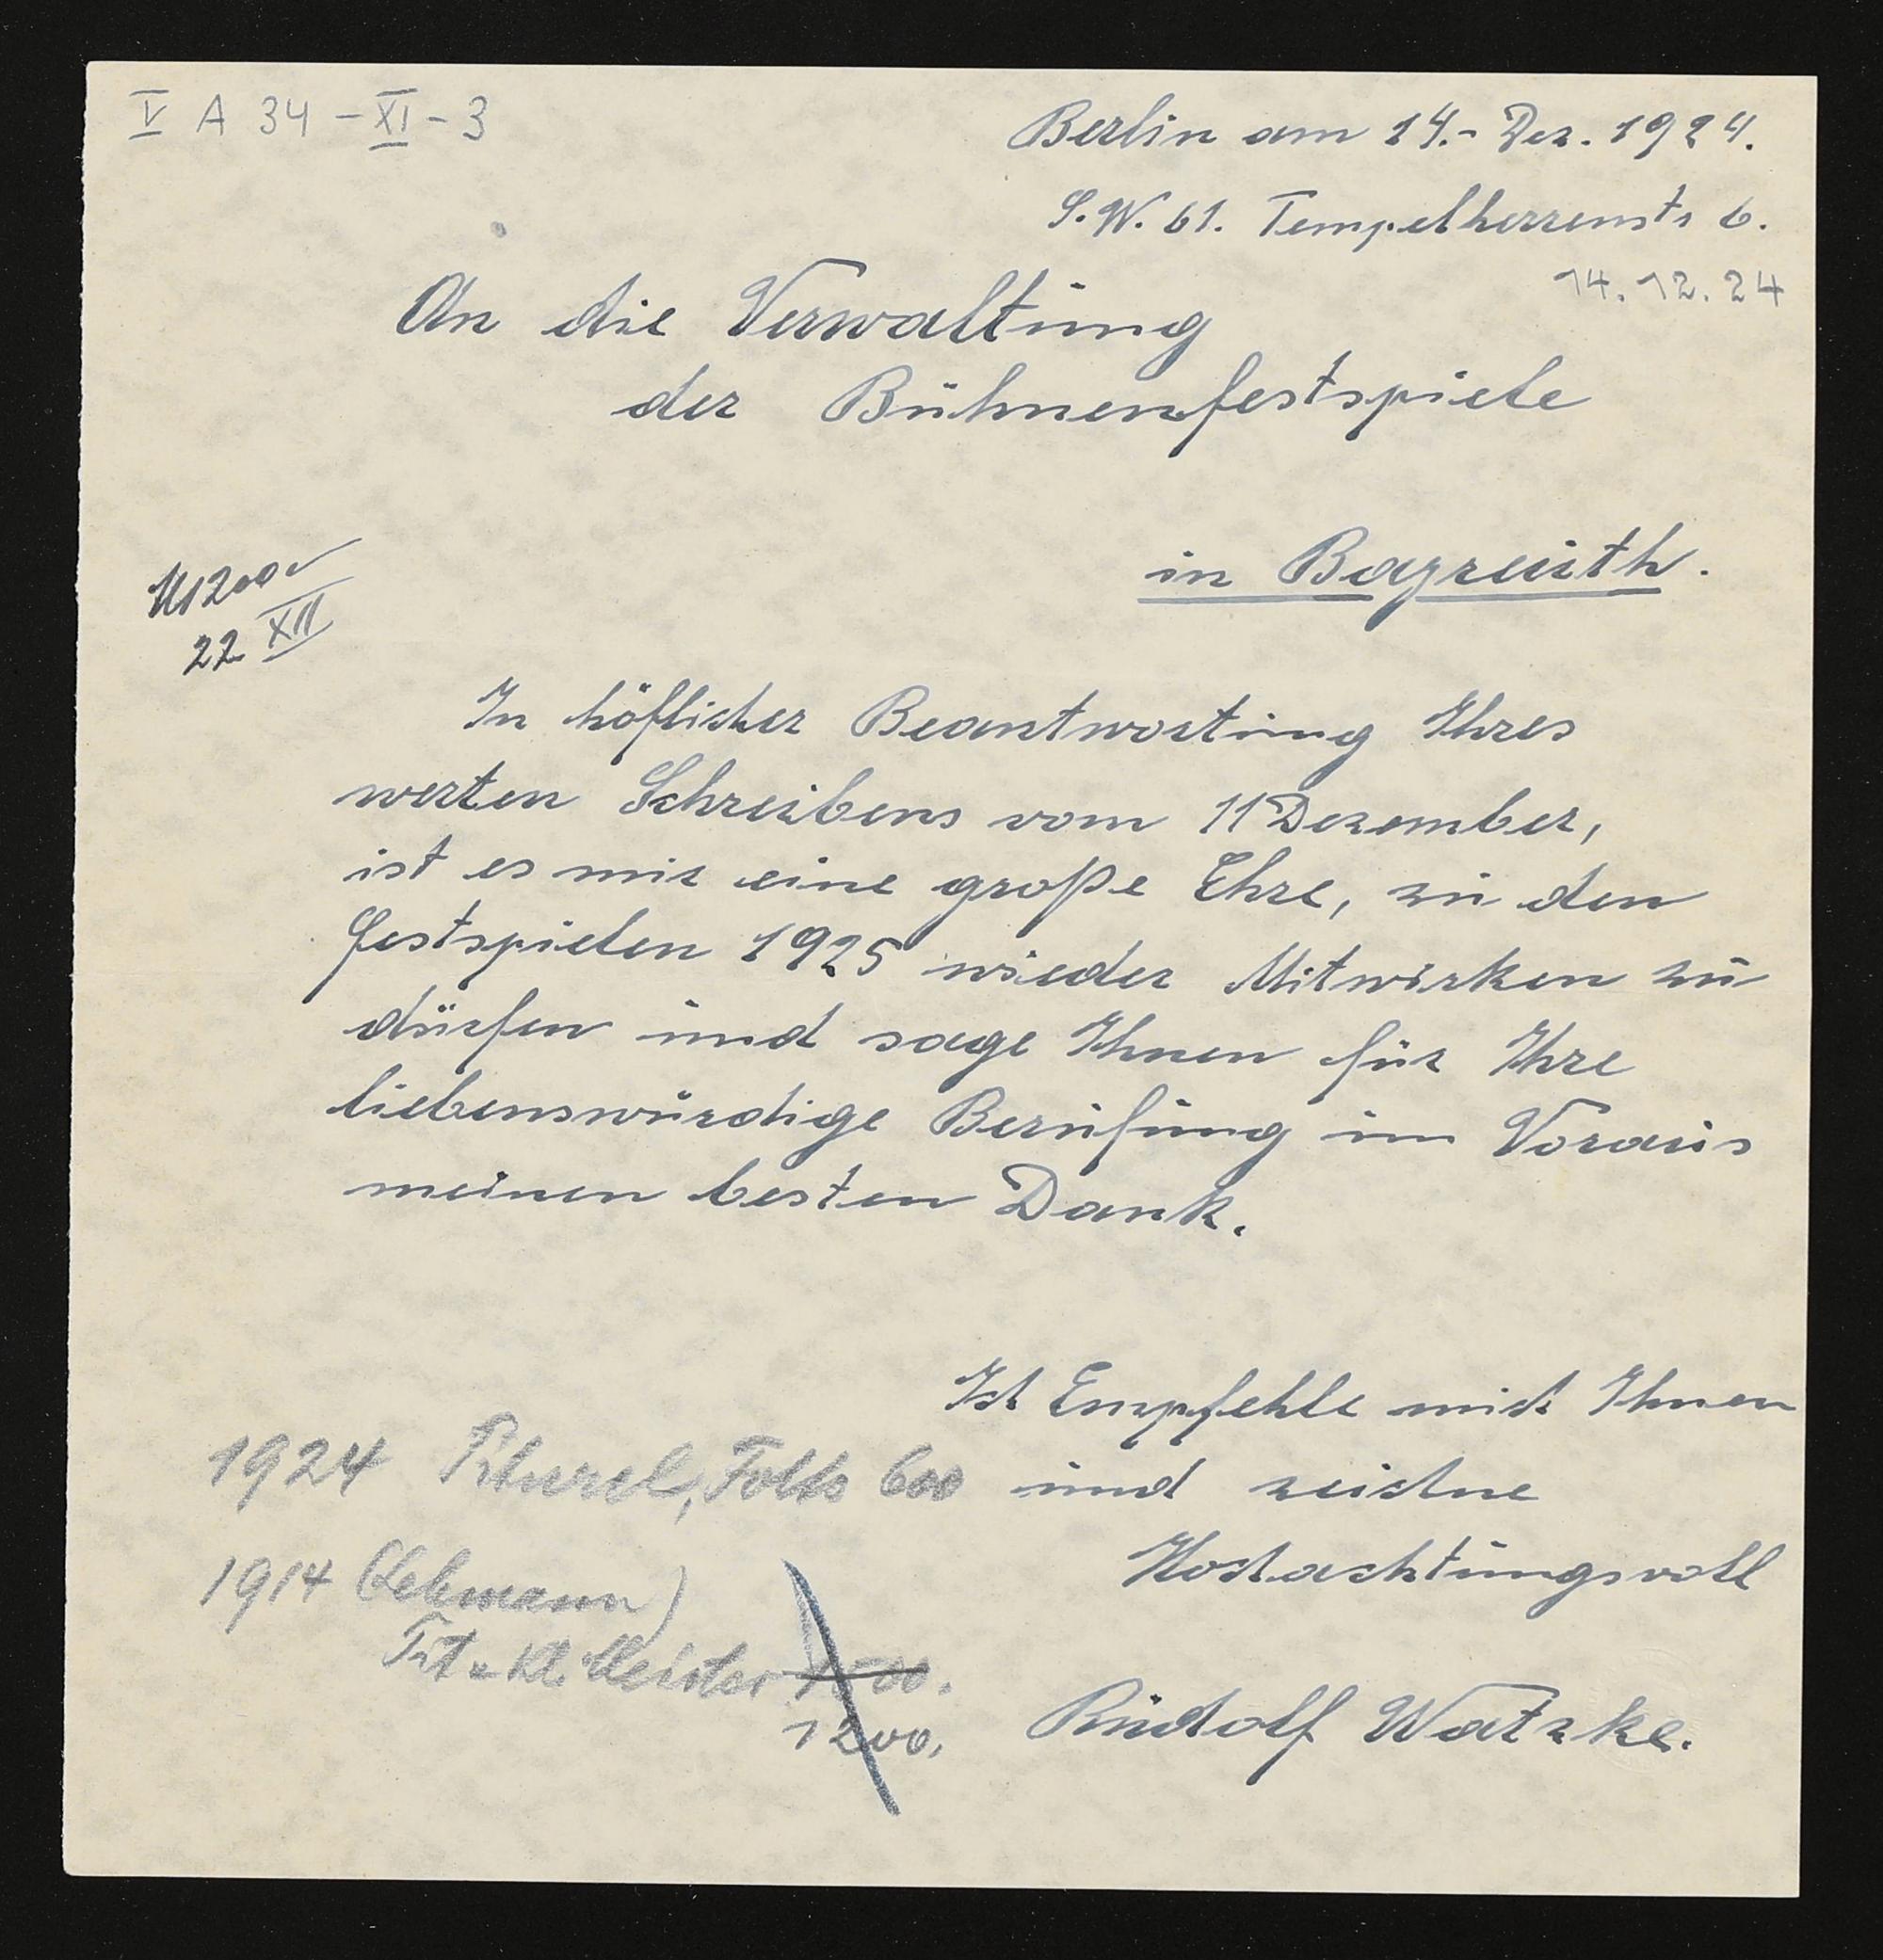 V A 34 - XI - 3
Berlin am 14.- Dez. 1924.
S.W. 61. Tempelherrenstr 6.
14.12.24
An die Verwaltung
der Bühnenfestspiele
in Bayreuth.
M 1200
22. XII
In höflicher Beantwortung Ihres
werten Schreibens vom 11 Dezember,
ist es mir eine große Ehre, zu den
Festspielen 1925 wieder Mitwirken zu
dürfen und sage Ihnen für Ihre
liebenswürdige Berufung im Voraus
meinen besten Dank.
Ich Empfehle mich Ihnen
und zeichne
Hochachtungsvoll
Rudolf Watzke.
1924 Titurel, Foltz 600
1914 (Lehmann)
Tit u Kl. Meister 1500.
1200.